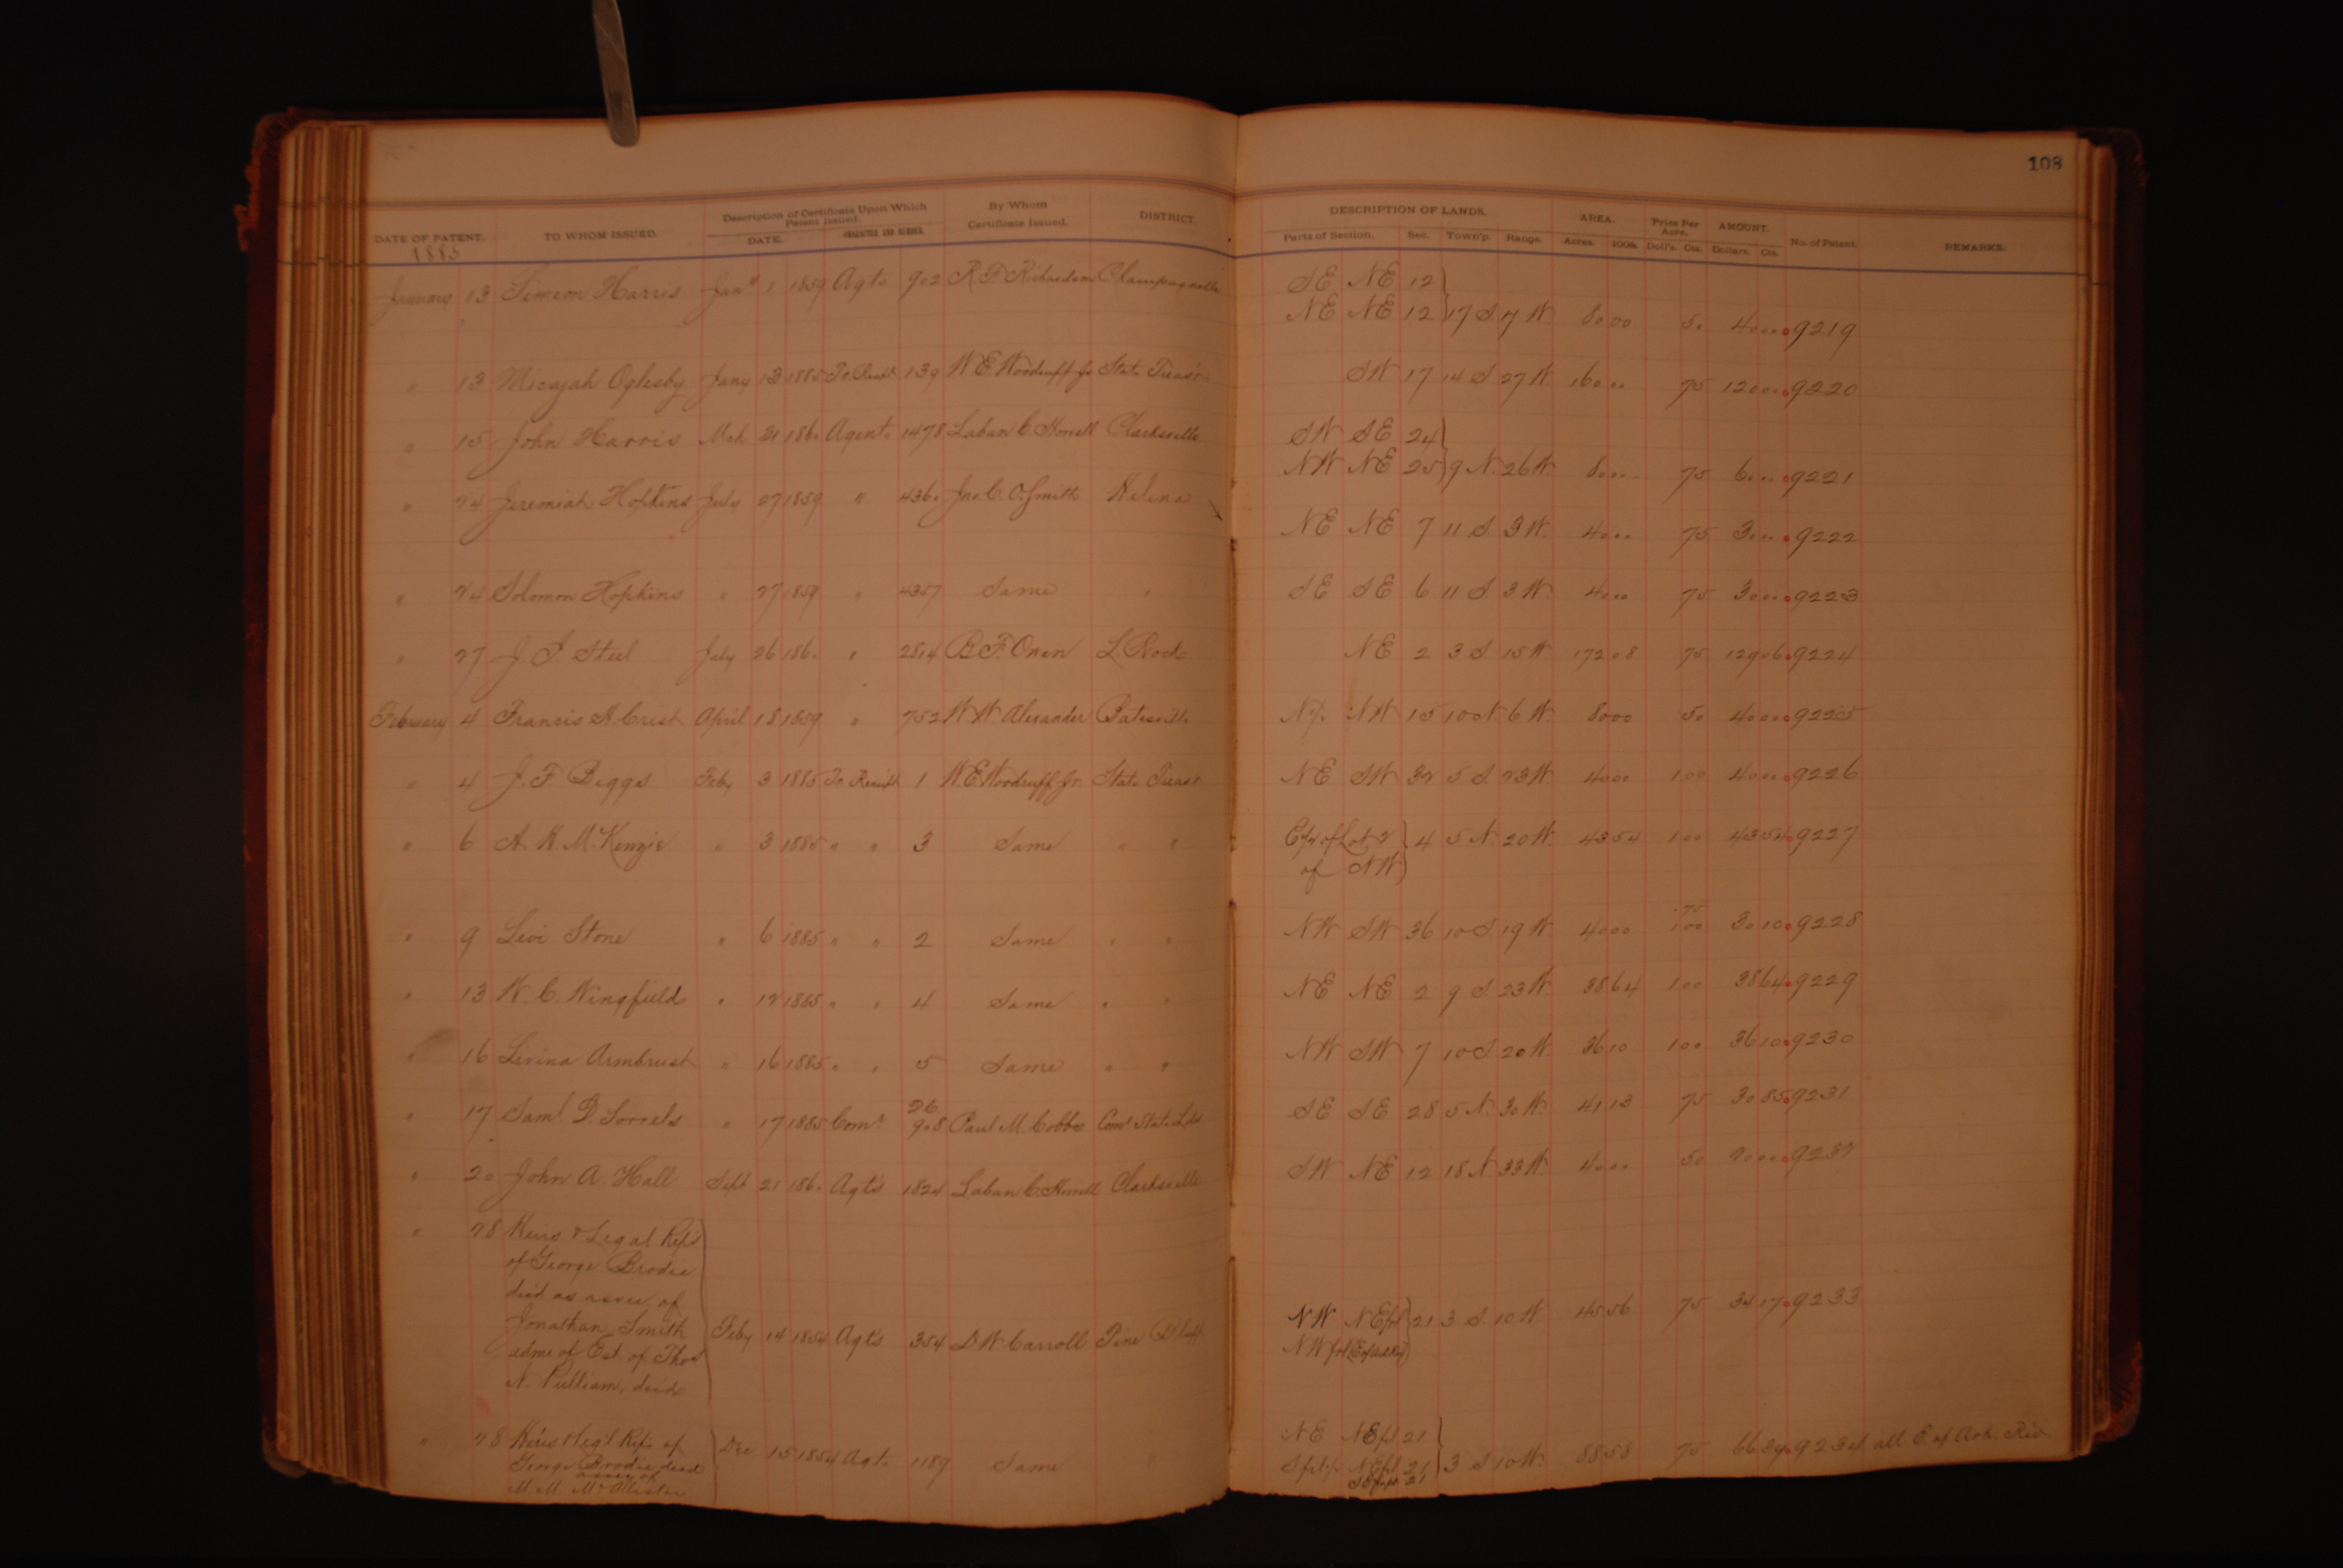 108
DATE OF PATENT. TO WHOM ISSUED. Description of Certificate Upon Which Patent Issued. DATE. CHARACTER AND NUMBER. By Whom Certificate Issued. DISTRICT. DESCRIPTION OF LANDS. Parts of Section. Sec. Town'p. Range. AREA. Acres. 100ths. Price Per Acre. Doll's. Cts. AMOUNT. Dollars. Cts. No. of Patent. REMARKS.
1885
January 13 Simeon Harris Jany 1 1859 Agts 902 R. F. Richardson Champagnolle SE NE 12
NE NE 12 17 S 7 W 80 00 50 40 00 9219
" 13 Micajah Oglesby Jany 13 1885 Tr. Receipt 139 W. E. Woodruff Jr State Treas'r SW 17 14 S 27 W 160 00 75 120 00 9220
" 15 John Harris Mch 21 1860 Agents 1478 Laban C. Howell Clarksville SW SE 24
NW NE 25 9 N. 26 W 80 00 75 60 00 9221
" 24 Jeremiah Hopkins July 27 1859 " 4360 Jno. C. O. Smith Helena NE NE 7 11 S. 3 W. 40 00 75 30 00 9222
" 24 Solomon Hopkins " 27 1859 " 4357 Same " SE SE 6 11 S. 3 W. 40 00 75 30 00 9223
" 27 J. T. Steel July 26 1860 " 2814 B. F. Owen L. Rock NE 2 3 S 15 W 172 08 75 129 06 9224
February 4 Francis H. Crest April 18 1859 " 752 W W Alexander Batesville N½ NW 15 10 N 6 W. 80 00 50 40 00 9225
" 4 J. F. Biggs Feby 3 1885 Tr Receipt 1 W. E. Woodruff Jr. State Treasr NE SW 32 5 S 23 W. 40 00 1 00 40 00 9226
" 6 A. H. McKenzie " 3 1885 " " 3 Same " " E½ of Lot 2 4 5 N. 20 W. 43 54 1 00 43 54 9227
of NW
" 9 Levi Stone " 6 1885 " " 2 Same " " NW SW 36 10 S. 19 W 40 00 .75 1 00 30 10 9228
" 13 W. C. Wingfield " 12 1885 " " 4 Same " " NE NE 2 9 S 23 W. 38 64 1 00 38 64 9229
" 16 Livina Armbrust " 16 1885 " " 5 Same " " NW SW 7 10 S. 20 W. 36 10 1 00 36 10 9230
" 17 Saml. D. Sorrels " 17 1885 Comr. 26 908 Paul M. Cobbs Comr. State Lds SE SE 28 5 N. 30 W. 41 13 75 30 85 9231
" 20 John A. Hall Sept 21 1860 Agts 1824 Laban C. Howell Clarksville SW NE 12 18 N 33 W. 40 00 50 20 00 9232
" 28 Heirs & Legal Reps
of George Brodie
dec'd as assee. of
Jonathan Smith
admr of Est. of Thos
N. Pulliam, dec'd
Feby 14 1854 Agts 354 D. W. Carroll Pine Bluff NW NE frl 21 3 S. 10 W. 45 56 75 34 17 9233
NW frl (E of Ark Riv)
" 28 Heirs & leg'l Reps of
George Brodie decd
assee of
M. M. McAllister
Dec 15 1854 Agts 1189 Same " NE NE frl 21
S frl ½ NE frl 21 3 S 10 W. 88 58 75 66 34 9234 all E. of Ark. Riv
SE frl 21